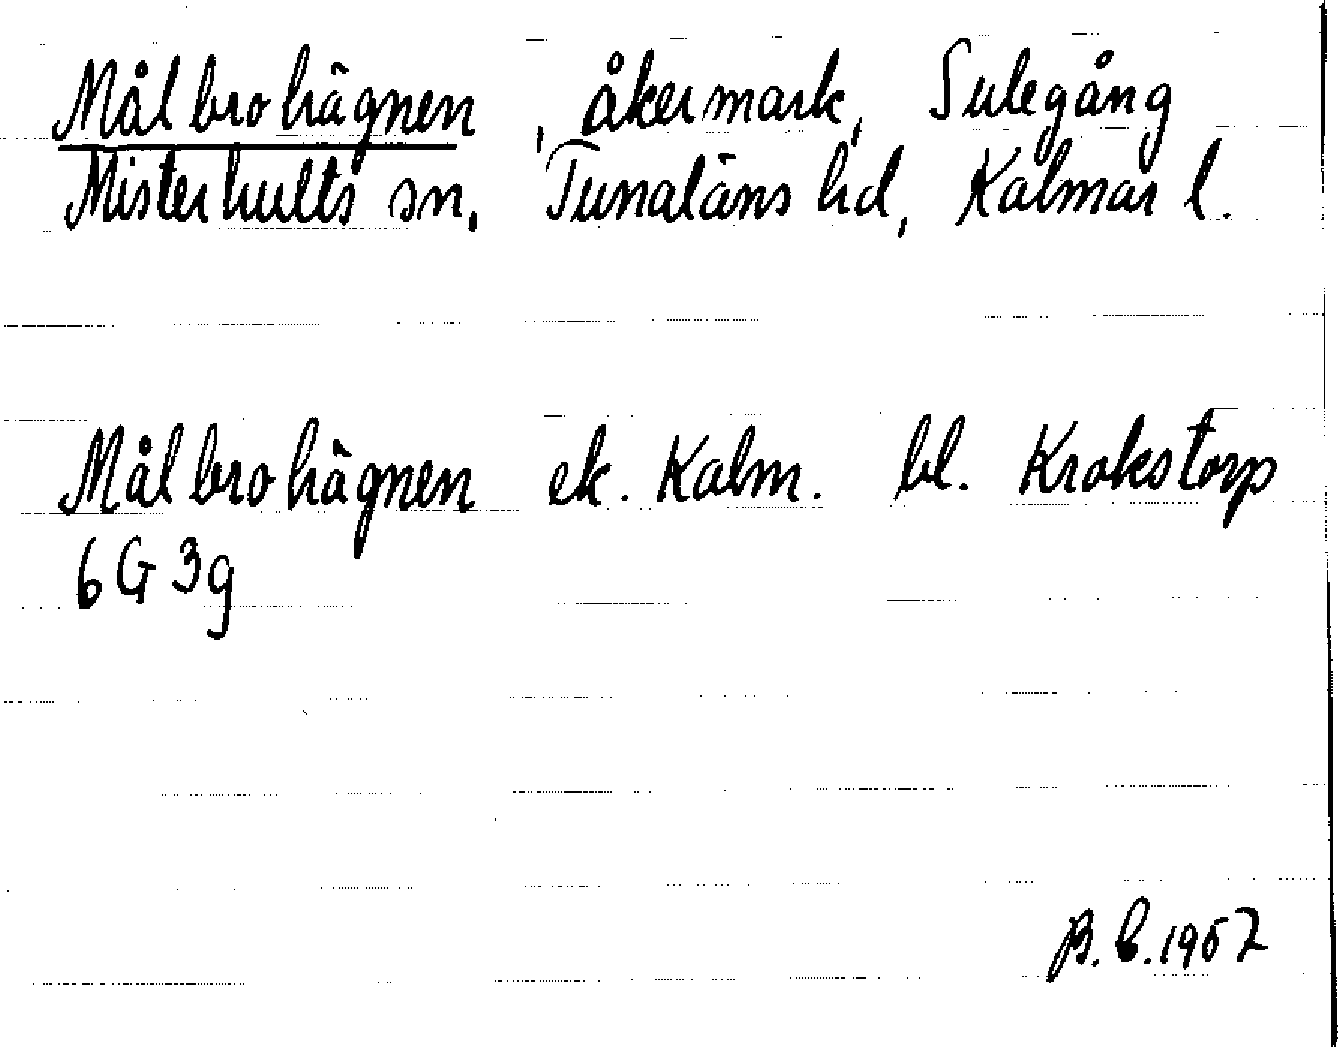 Målbrohägnen, åkermark, Sulegång
Misterhults sn, Tunaläns hd, Kalmar l.
Målbrohägnen ek. Kalm. bl. Krokstorp
6 G 3g
B. C. 1957